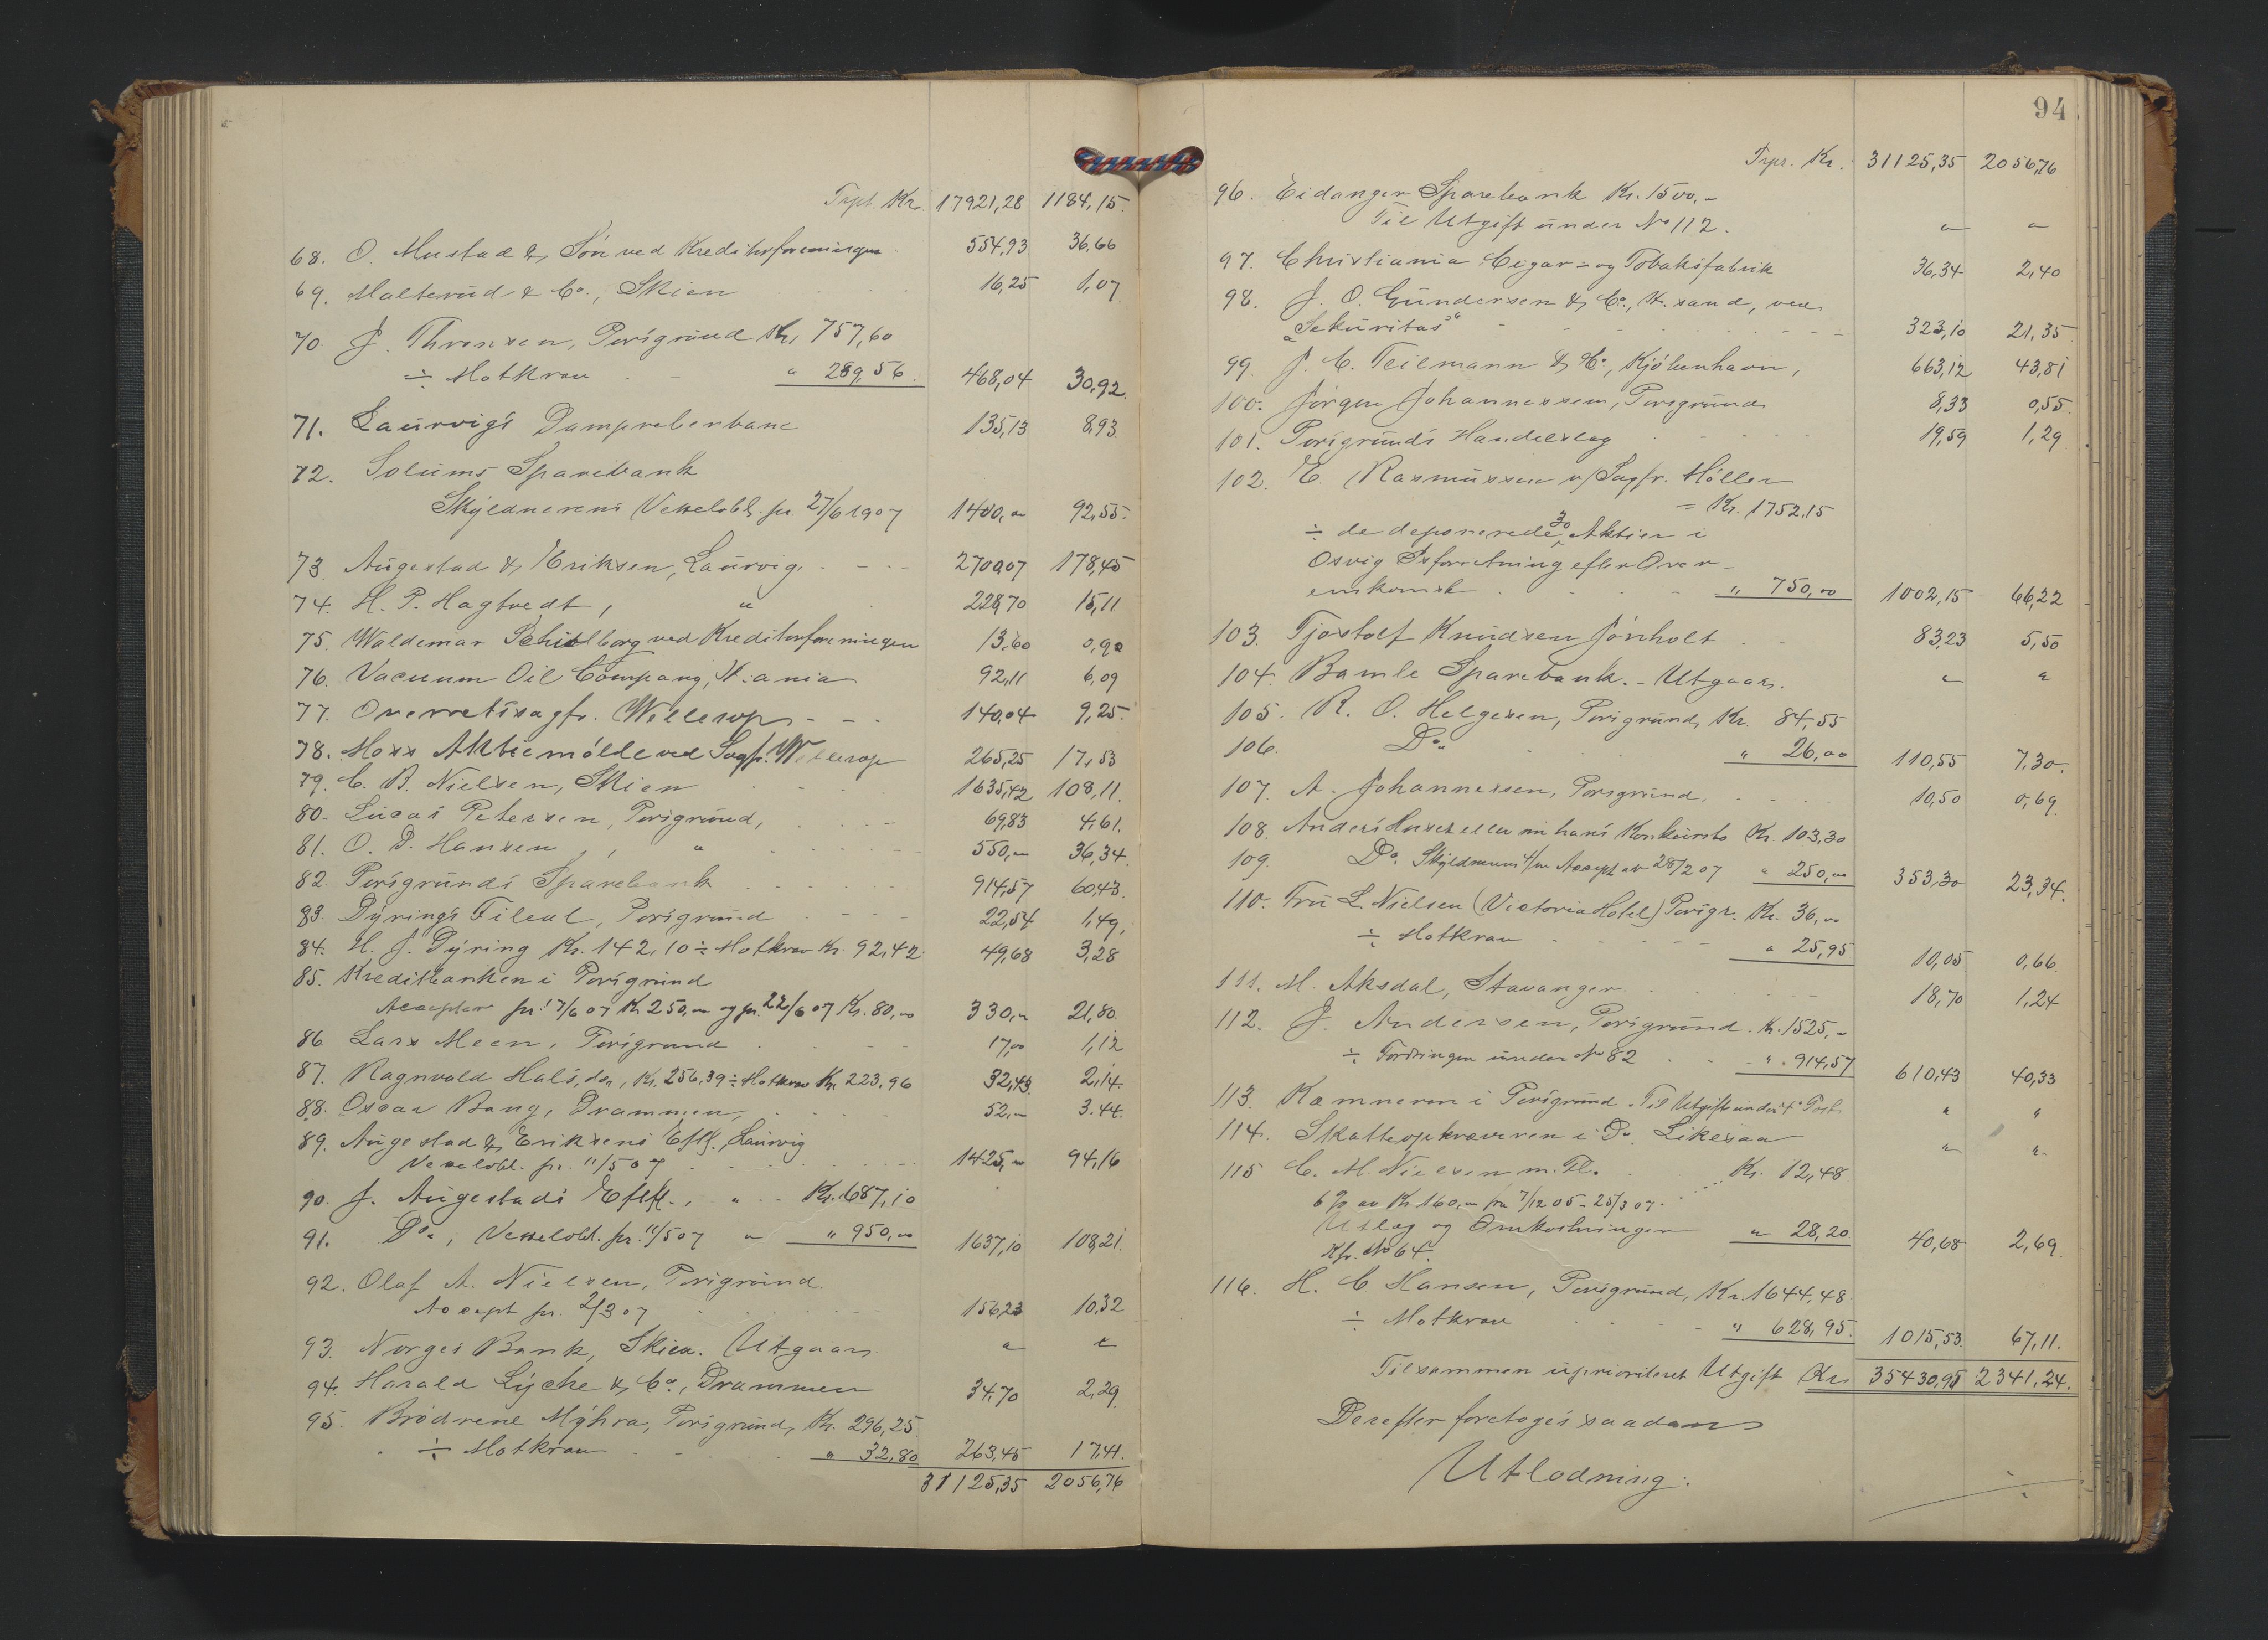 Trpt. Kr. 17921,28 1184,15.
68. O. Mustad & Søn ved Kreditorforeningen 554,93 36,66
69. Malterud & Co., Skien 16,25 1,07
70. J. Thronsen, Porsgrund Kr. 757,60
÷ Motkrav " 289,56. 468,04 30,92.
71. Laurvigs Dampræberbane 135,13 8,93.
72. Solums Sparebank
Skyldnerens Vexelobl. pr. 27/6 1907 1400,00 92,55.
73. Augestad & Eriksen, Laurvig. 2700,07 178,45
74. H. P. Hagtvedt, " 228,70 15,11
75. Waldemar Schiølborg ved Kreditorforeningen 13,60 0,90
76. Vacuum Oil Company, K.ania 92,11 6,09
77. Overretssagfr. Wellerop 140,04 9,25.
78. Moss Aktiemølle ved Sagf. Wellerop 265,25 17,53
79. C. B. Nielsen, Skien 1635,42 108,11.
80. Lucas Petersen, Porsgrund, 69,83 4,61.
81. O. P. Hansen, " 550,00 36,34.
82. Porsgrunds Sparebank 914,57 60,43.
83. Dyrings Filial, Porsgrund 22,54 1,49.
84. H. J. Dyring Kr. 142,10 ÷ Motkrav Kr. 92,42. 49,68 3,28
85. Kreditbanken i Porsgrund
Accepter pr. 17/6 07 Kr. 250,00 og pr. 22/6 07 Kr. 80,00 330,00 21,80.
86. Lars Meen, Porsgrund 17,00 1,12
87. Ragnvald Hals, do., Kr. 256,39 ÷ Motkrav Kr. 223,96 32,43 2,14.
88. Oscar Bang, Drammen, 52,– 3.44.
89. Augestad & Eriksens Eftf., Laurvig
Vexelobl. pr. 11/5 07 1425,00 94,16
90. J. Augestads Eftf., " Kr. 687,10
91. Do., Vexelobl. pr. 11/5 07 " " 950,00 1637,10 108,21.
92. Olaf A. Nielsen, Porsgrund.
Accept pr. 2/3 07 156,23 10,32
93. Norges Bank, Skien. Utgaar. " "
94. Harald Lyche & Co., Drammen 34,70 2,29.
95. Brødrene Myhra, Porsgrund, Kr. 296,25.
÷ Motkrav " 32,80 263,45 17,41.
31125,35 2056,76
94
Trpr. Kr. 31125,35 2056,76
96. Eidanger Sparebank Kr. 1500,–
Til Utgift under No 112. " "
97. Christiania Cigar- og Tobaksfabrik 36,34 2,40
98. J. O. Gundersen & Co., K.sand, ved
"Sekuritas" 323,10 21,35
99. J. C. Teilmann & Co, Kjøbenhavn, 663,12 43,81
100. Jørgen Johannessen, Porsgrund 8,33 0,55.
101. Porsgrunds Handelslag 19,59 1,29
102. E. Rasmussen v/ Sagfr. Møller
= Kr. 1752,15
÷ de deponerede 30 Aktier i
Osvig Isforretning efter Over-
enskomst " 750,00 1002,15 66,22
103. Tjostolf Knudsen Jønholt 83,23 5,50
104. Bamle Sparebank. – Utgaar. " "
105. R. O. Helgesen, Porsgrund, Kr. 84,55
106. Do. " 26,00 110,55 7,30.
107. A. Johannessen, Porsgrund. 10,50 0,69.
108. Anders Huset eller nu hans Konkursbo Kr. 103,30
109. Do. Skyldnerens Accept av 28/2 07 " 250,00 353,30 23,34.
110. Fru L. Nielsen (Victoria Hotel) Porsgr. Kr. 36,00
÷ Motkrav " 25,95 10,05 0,66.
111. M. Aksdal, Stavanger 18,70 1,24
112. J. Andersen, Porsgrund. Kr. 1525,–
÷ Fordringen under No 82 " 914,57 610,43 40,33
113. Kæmneren i Porsgrund. Til Utgift under 4o Post. " "
114. Skatteopkræveren i Do. Likesaa " "
115 C. M. Nielsen m. Fl. Kr. 12,48
6 % av Kr. 160,00 fra 7/12 05 – 25/3 07.
Utlæg og Omkostninger " 28,20. 40,68 2,69.
Kfr. No 64.
116. H. C. Hansen, Porsgrund, Kr. 1644,48.
÷ Motkrav " 628,95. 1015,53. 67,11.
Tilsammen uprioriteret Utgift Kr. 35430,95 2341,24.
Derefter foretoges saadan
Utlodning: